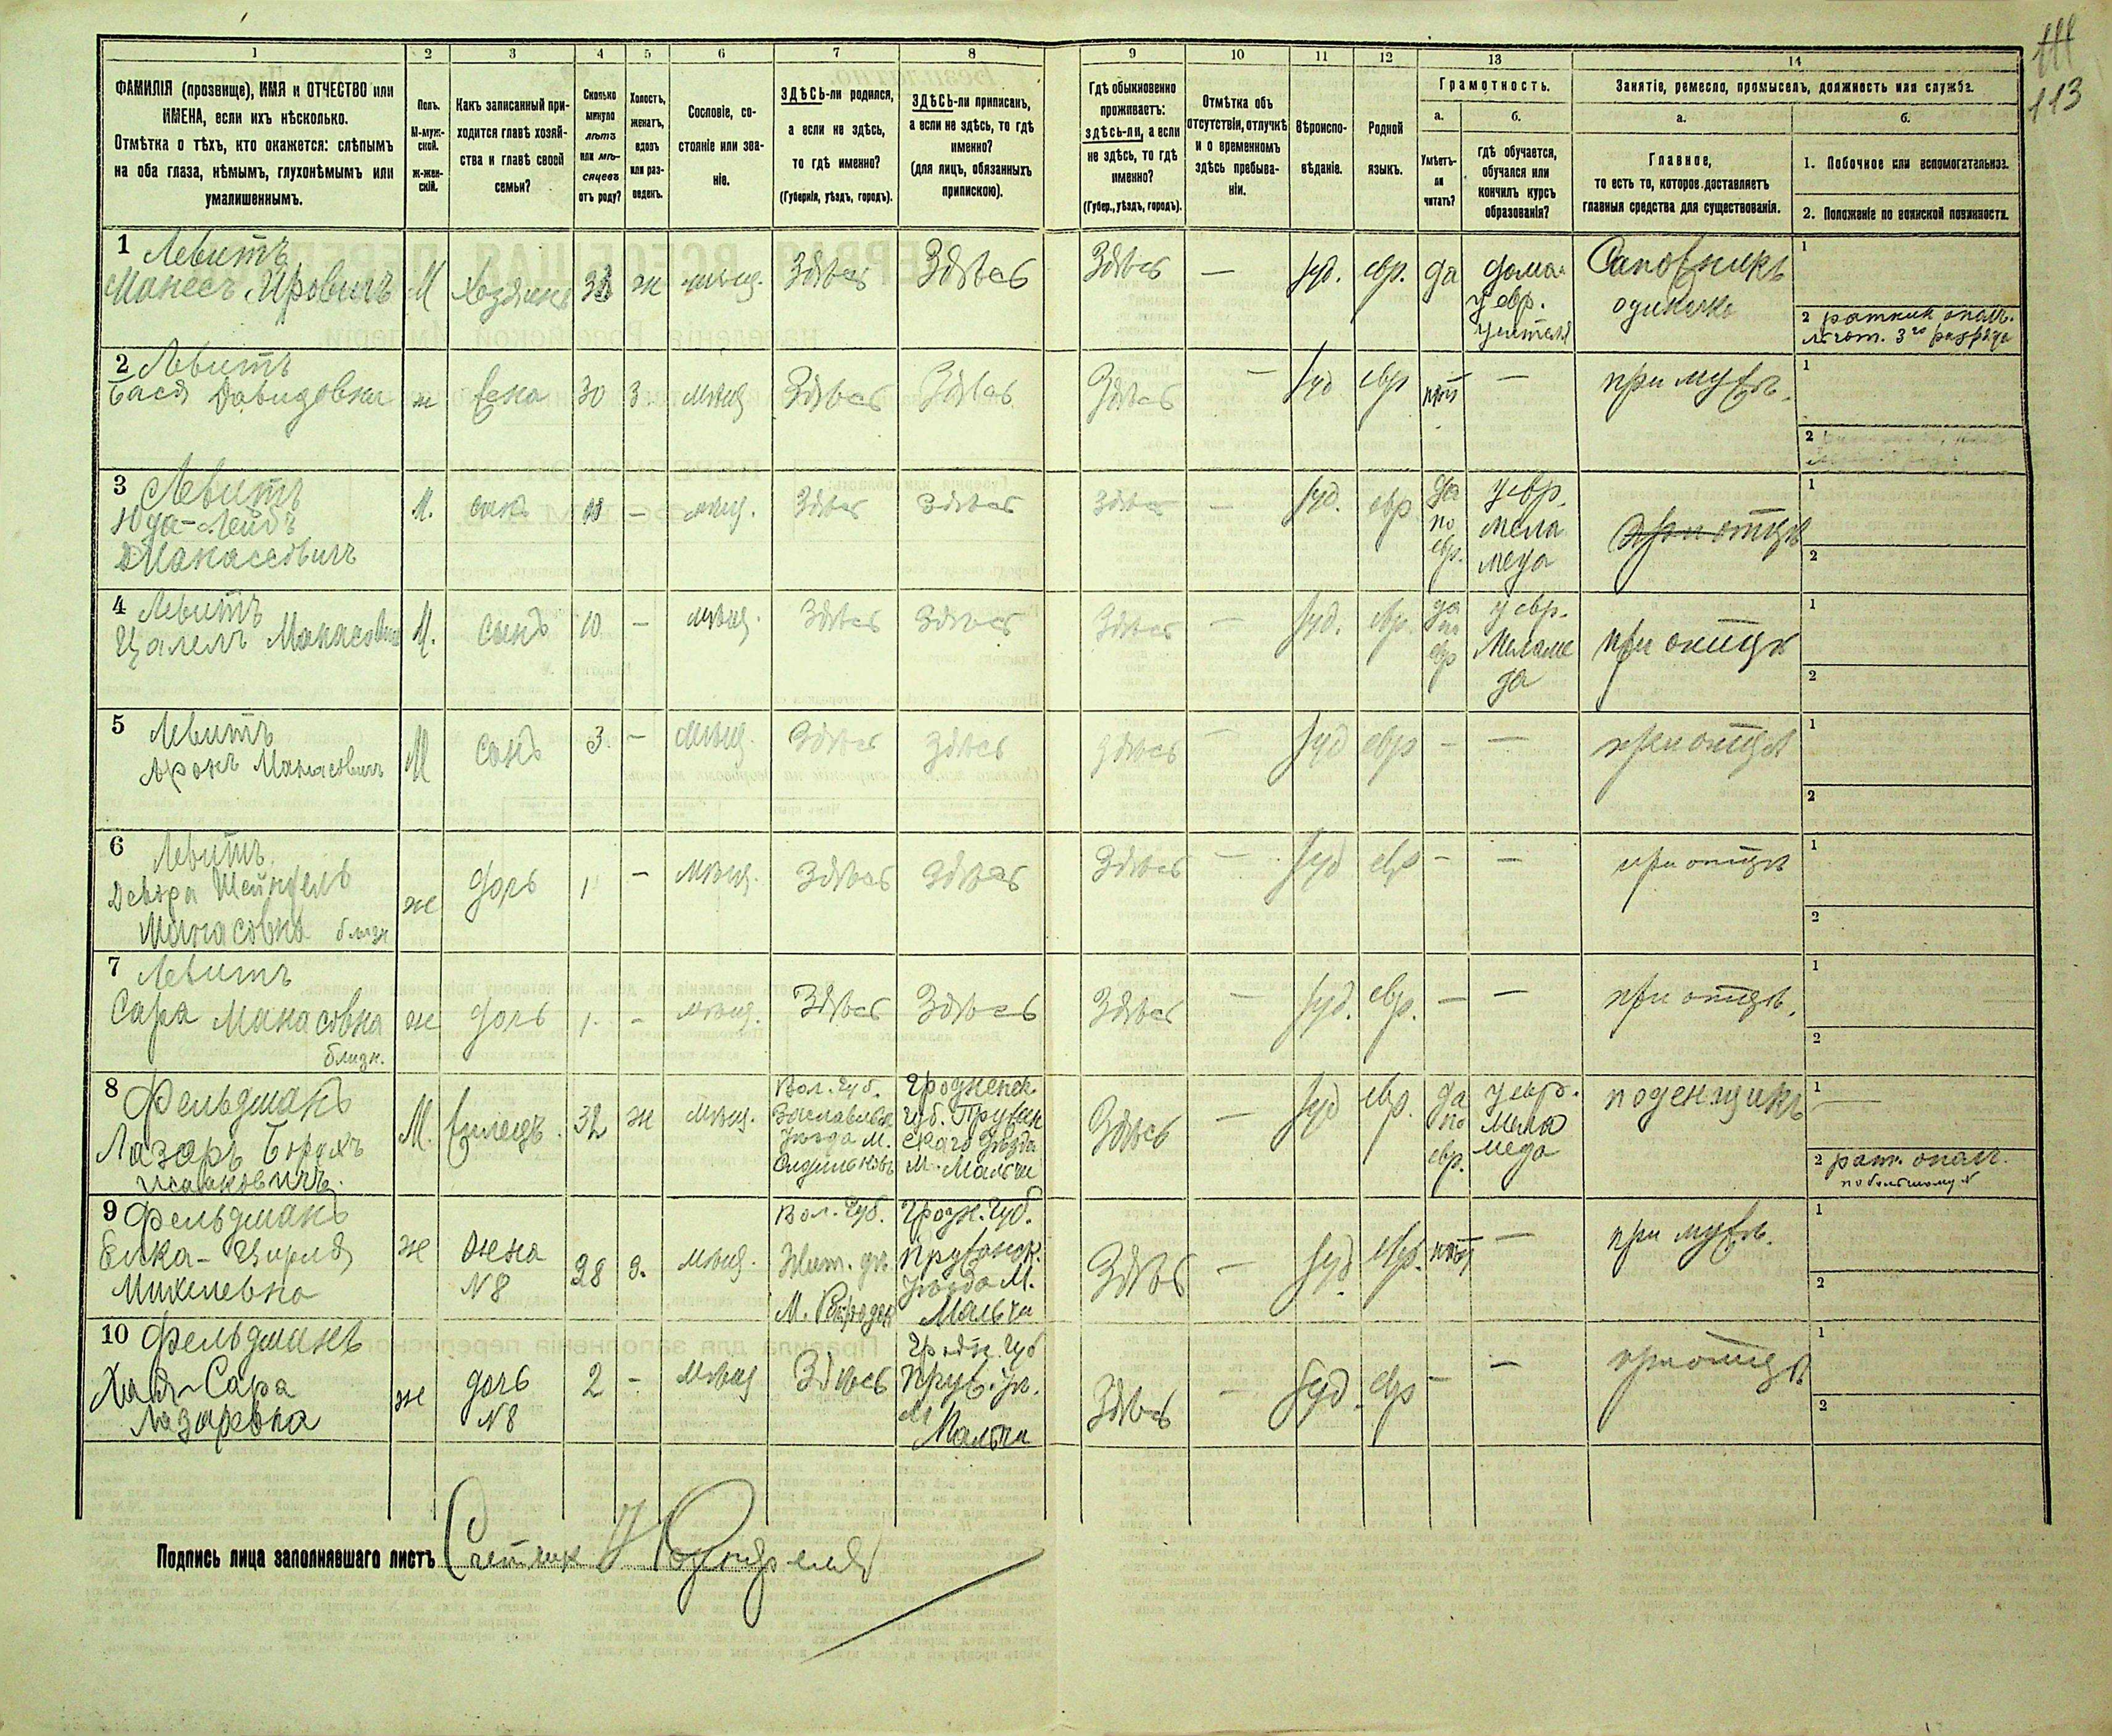 111
113
1 2 3 4 5 6 7 8 9 10 11 12 13 14
ФАМИЛІЯ (прозвище), ИМЯ и ОТЧЕСТВО или
ИМЕНА, если ихъ нѣсколько.
Отмѣтка о тѣхъ, кто окажется: слѣпымъ
на оба глаза, нѣмымъ, глухонѣмымъ или
умалишеннымъ.
Полъ.
М-муж-
ской.
ж-жен-
скій.
Какъ записанный при-
ходится главѣ хозяй-
ства и главѣ своей
семьи?
Сколько
минуло
лѣтъ
или мѣ-
сяцевъ
отъ роду?
Холостъ,
женатъ,
вдовъ
или раз-
веденъ.
Сословіе, со-
стояніе или зва-
ніе.
ЗДѢСЬ-ли родился,
а если не здѣсь,
то гдѣ именно?
(Губернія, уѣздъ, городъ).
ЗДѢСЬ-ли приписанъ,
а если не здѣсь, то гдѣ
именно?
(для лицъ, обязанныхъ
припискою).
Гдѣ обыкновенно
проживаетъ:
здѣсь-ли, а если
не здѣсь, то гдѣ
именно?
(Губер., уѣздъ, городъ).
Отмѣтка объ
отсутствіи, отлучкѣ
и о временномъ
здѣсь пребыва-
ніи.
Вѣроиспо-
вѣданіе.
Родной
языкъ.
Грамотность.
а.
Умѣетъ-
ли
читать?
б.
гдѣ обучается,
обучался или
кончилъ курсъ
образованія?
Занятіе, ремесло, промыселъ, должность или служба.
а.
Главное,
то есть то, которое доставляетъ
главныя средства для существованія.
б.
1. Побочное или вспомогательное.
2. Положеніе по воинской повинности.
1 Левитъ
Манесъ М Хозяинъ ж мѣщ. Здѣсь Здѣсь Здѣсь — Іуд. евр. да дома
у евр.
учителя
Сапожникъ
одиночка
1
2 ратник опол.
3го разряда
2 Левитъ
Бася Давидовна ж жена 30 З. мѣщ Здѣсь Здѣсь Здѣсь — Іуд евр нѣт — при мужѣ.
1
2
3 Левитъ
Юда-Лейбъ
Манасовичъ
М. сынъ — мѣщ. Здѣсь Здѣсь Здѣсь — Іуд. евр да
по
евр.
у евр.
мела
меда
при отцѣ
1
2
4 Левитъ
Цалелъ Манасович М. сынъ 10 — мѣщ. Здѣсь Здѣсь Здѣсь — Іуд. евр. да
по
евр
у евр.
Меламе
да
при отцѣ
1
2
5 Левитъ
Аронъ Манасовичъ М сынъ 3. — мѣщ. Здѣсь Здѣсь Здѣсь — Іуд евр — — при отцѣ
1
2
6 Левитъ
Девора Шейндель
Манасовна близн
ж дочь 1 — мѣщ. Здѣсь Здѣсь Здѣсь — Іуд евр — — при отцѣ
1
2
7 Левитъ
Сара Манасовна
близн.
ж дочь 1. — мѣщ. Здѣсь Здѣсь Здѣсь — Іуд. евр. — — при отцѣ.
1
2
8 Фельдманъ
Лазаръ Борухъ
Исааковичъ.
М. жилецъ. 32 ж мѣщ.
Вол. Губ.
Заславльск
уѣзда м.
Гродненск.
Губ. Пружан
скаго уѣзда
м. Мальчи
Здѣсь — Іуд евр. да
по
евр.
у евр.
мела
меда
поденщикъ
1 —
2 рат. опол.
9 Фельдманъ
Елка-Цирля
Михелевна
ж жена
№8
28 З. мѣщ.
Вол. Губ.
Жит. уѣ
М.
Гродн. Губ.
Пружанск.
уѣзда М.
Мальчи
Здѣсь — Іуд. евр. нѣт — при мужѣ.
1
2
10 Фельдманъ
Хая-Сара
Лазаревна
ж дочь
№8
2 — мѣщ Здѣсь
Гродн. Губ
Пруж. уѣ.
М
Мальчи
Здѣсь — Іуд. евр — — при отцѣ
1
2
Подпись лица заполнявшаго листъ Счетчик